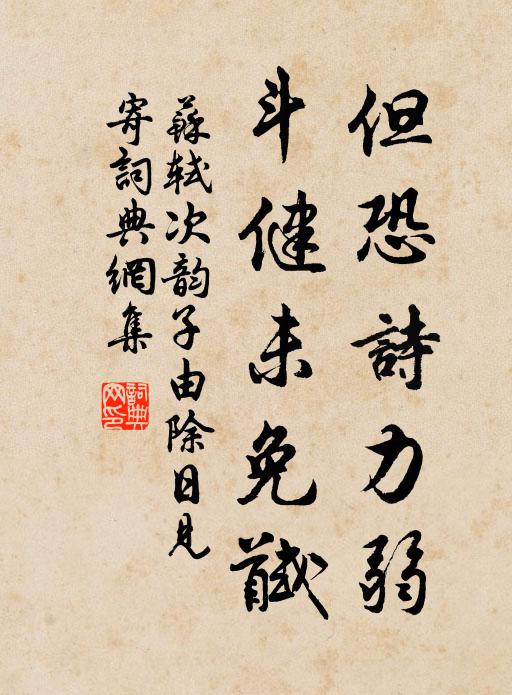 但恐詩力弱
斗健未免馘
蘇軾次韵子由除日見
寄詞典網集
詞典网印